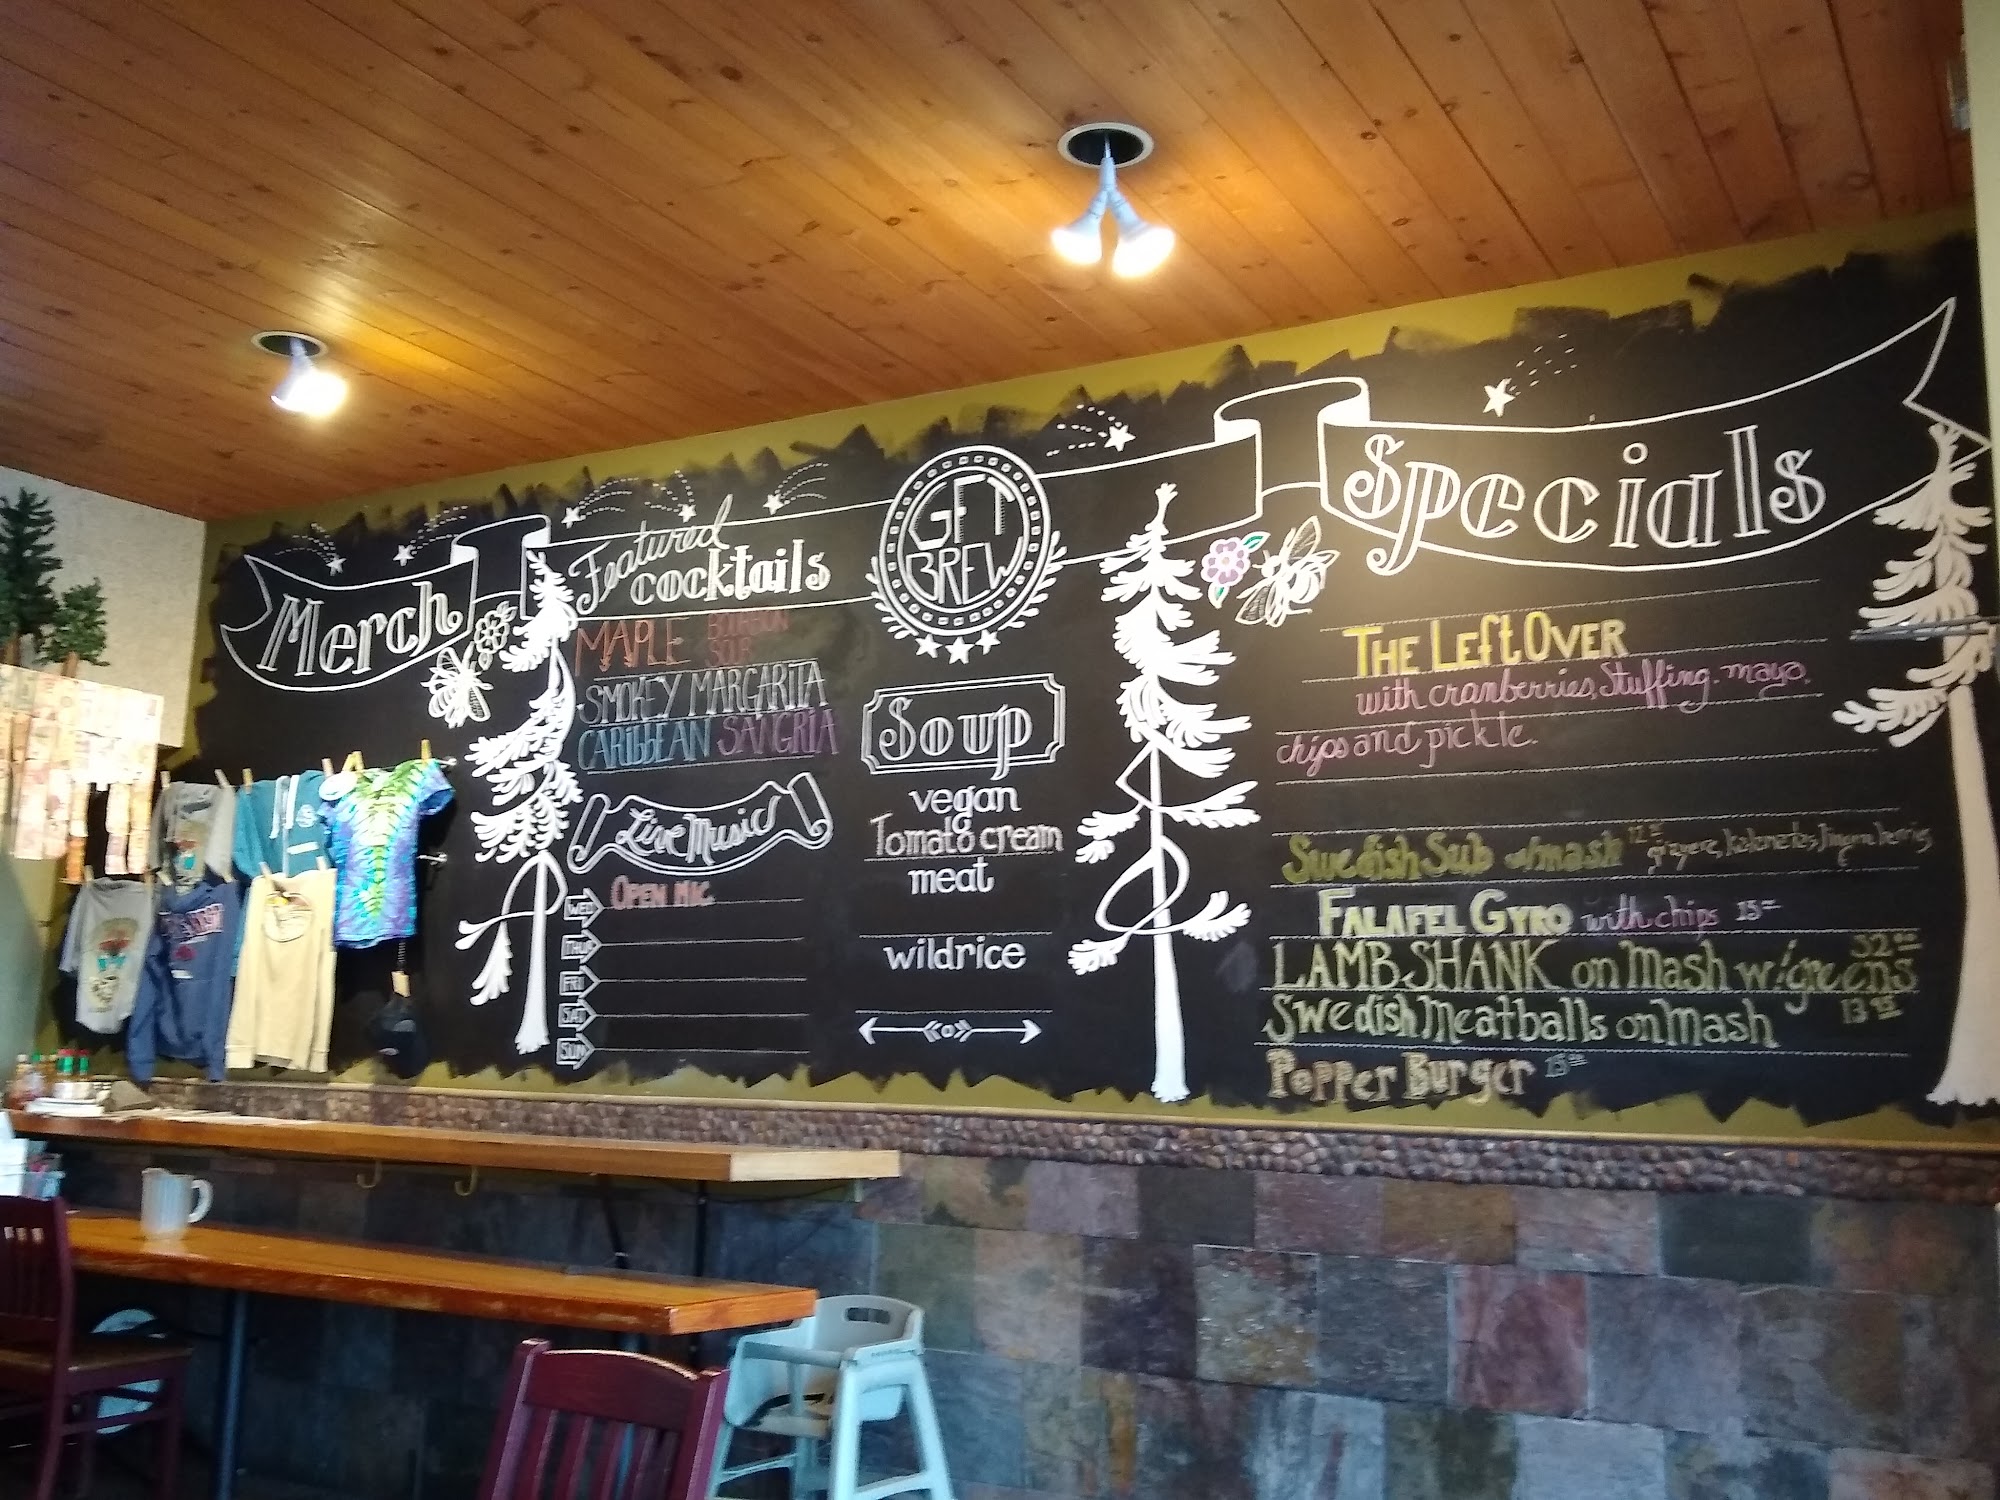 Merch
Featured
cocktails
MAPLE BOURBON
SOUR
SMOKEY MARGARITA
CARIBBEAN SANGRIA
Live Music
WED OPEN MIC
THUR
FRI
SAT
SUN
GET
BREW
Soup
vegan
Tomato cream
meat
wildrice
Specials
THE LEftOVER
with cranberries, Stuffing. mayo,
chips and pickle.
Swedish Sub w/mash 12
FALAFEL GYRO with chips 15
LAMB SHANK on Mash w/greens 32
Swedish Meatballs on Mash 13
Pepper Burger 15